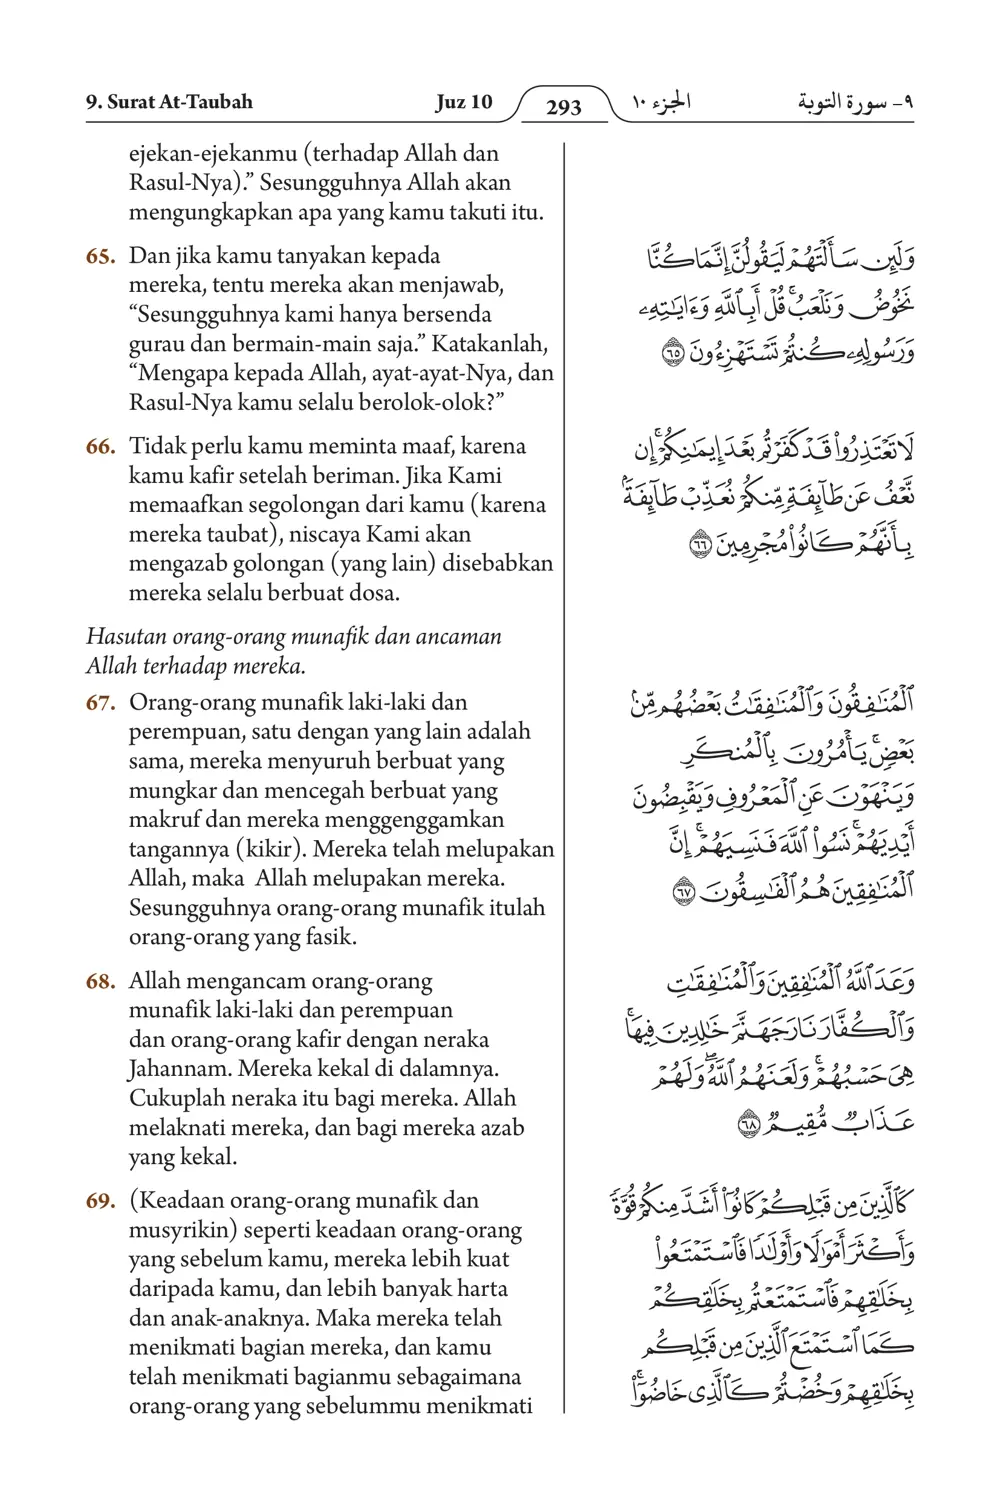 9. Surat At-Taubah
Juz 10
293
الجزء ١٠
٩- سورة التوبة
ejekan-ejekanmu (terhadap Allah dan
Rasul-Nya).” Sesungguhnya Allah akan
mengungkapkan apa yang kamu takuti itu.
65. Dan jika kamu tanyakan kepada
mereka, tentu mereka akan menjawab,
“Sesungguhnya kami hanya bersenda
gurau dan bermain-main saja.” Katakanlah,
“Mengapa kepada Allah, ayat-ayat-Nya, dan
Rasul-Nya kamu selalu berolok-olok?”
وَلَئِن سَأَلْتَهُمْ لَيَقُولُنَّ إِنَّمَا كُنَّا
نَخُوضُ وَنَلْعَبُ ۚ قُلْ أَبِٱللَّهِ وَءَايَٰتِهِۦ
وَرَسُولِهِۦ كُنتُمْ تَسْتَهْزِءُونَ ٦٥
66. Tidak perlu kamu meminta maaf, karena
kamu kafir setelah beriman. Jika Kami
memaafkan segolongan dari kamu (karena
mereka taubat), niscaya Kami akan
mengazab golongan (yang lain) disebabkan
mereka selalu berbuat dosa.
لَا تَعْتَذِرُوا۟ قَدْ كَفَرْتُم بَعْدَ إِيمَٰنِكُمْ ۚ إِن
نَّعْفُ عَن طَآئِفَةٍ مِّنكُمْ نُعَذِّبْ طَآئِفَةًۢ
بِأَنَّهُمْ كَانُوا۟ مُجْرِمِينَ ٦٦
Hasutan orang-orang munafik dan ancaman
Allah terhadap mereka.
67. Orang-orang munafik laki-laki dan
perempuan, satu dengan yang lain adalah
sama, mereka menyuruh berbuat yang
mungkar dan mencegah berbuat yang
makruf dan mereka menggenggamkan
tangannya (kikir). Mereka telah melupakan
Allah, maka  Allah melupakan mereka.
Sesungguhnya orang-orang munafik itulah
orang-orang yang fasik.
ٱلْمُنَٰفِقُونَ وَٱلْمُنَٰفِقَٰتُ بَعْضُهُم مِّنۢ
بَعْضٍ ۚ يَأْمُرُونَ بِٱلْمُنكَرِ
وَيَنْهَوْنَ عَنِ ٱلْمَعْرُوفِ وَيَقْبِضُونَ
أَيْدِيَهُمْ ۚ نَسُوا۟ ٱللَّهَ فَنَسِيَهُمْ ۗ إِنَّ
ٱلْمُنَٰفِقِينَ هُمُ ٱلْفَٰسِقُونَ ٦٧
68. Allah mengancam orang-orang
munafik laki-laki dan perempuan
dan orang-orang kafir dengan neraka
Jahannam. Mereka kekal di dalamnya.
Cukuplah neraka itu bagi mereka. Allah
melaknati mereka, dan bagi mereka azab
yang kekal.
وَعَدَ ٱللَّهُ ٱلْمُنَٰفِقِينَ وَٱلْمُنَٰفِقَٰتِ
وَٱلْكُفَّارَ نَارَ جَهَنَّمَ خَٰلِدِينَ فِيهَا ۚ
هِىَ حَسْبُهُمْ ۚ وَلَعَنَهُمُ ٱللَّهُ ۖ وَلَهُمْ
عَذَابٌ مُّقِيمٌ ٦٨
69. (Keadaan orang-orang munafik dan
musyrikin) seperti keadaan orang-orang
yang sebelum kamu, mereka lebih kuat
daripada kamu, dan lebih banyak harta
dan anak-anaknya. Maka mereka telah
menikmati bagian mereka, dan kamu
telah menikmati bagianmu sebagaimana
orang-orang yang sebelummu menikmati
كَٱلَّذِينَ مِن قَبْلِكُمْ كَانُوٓا۟ أَشَدَّ مِنكُمْ قُوَّةً
وَأَكْثَرَ أَمْوَٰلًا وَأَوْلَٰدًا فَٱسْتَمْتَعُوا۟
بِخَلَٰقِهِمْ فَٱسْتَمْتَعْتُم بِخَلَٰقِكُمْ
كَمَا ٱسْتَمْتَعَ ٱلَّذِينَ مِن قَبْلِكُم
بِخَلَٰقِهِمْ وَخُضْتُمْ كَٱلَّذِى خَاضُوٓا۟ ۚ